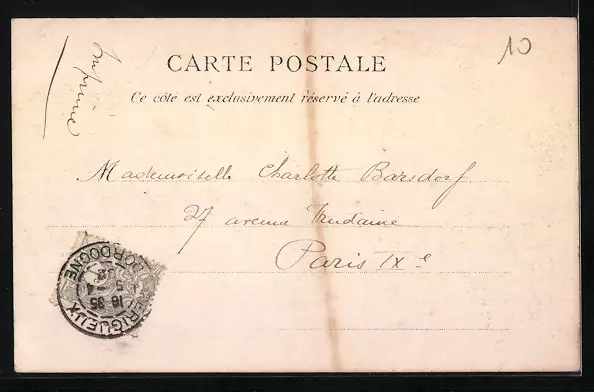 Imprimé
10
CARTE POSTALE
Ce côté est exclusivement réservé à l'adresse
Mademoiselle Charlotte Barsdorf
27 avenue Trudaine
Paris IXe
PERIGUEUX
DORDOGNE